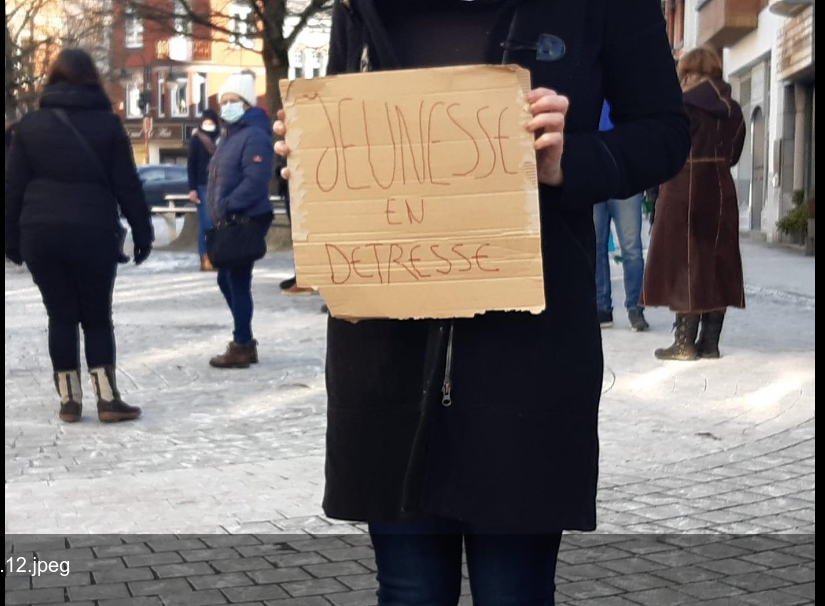 JEUNESSE
EN
DETRESSE
.12.jpeg